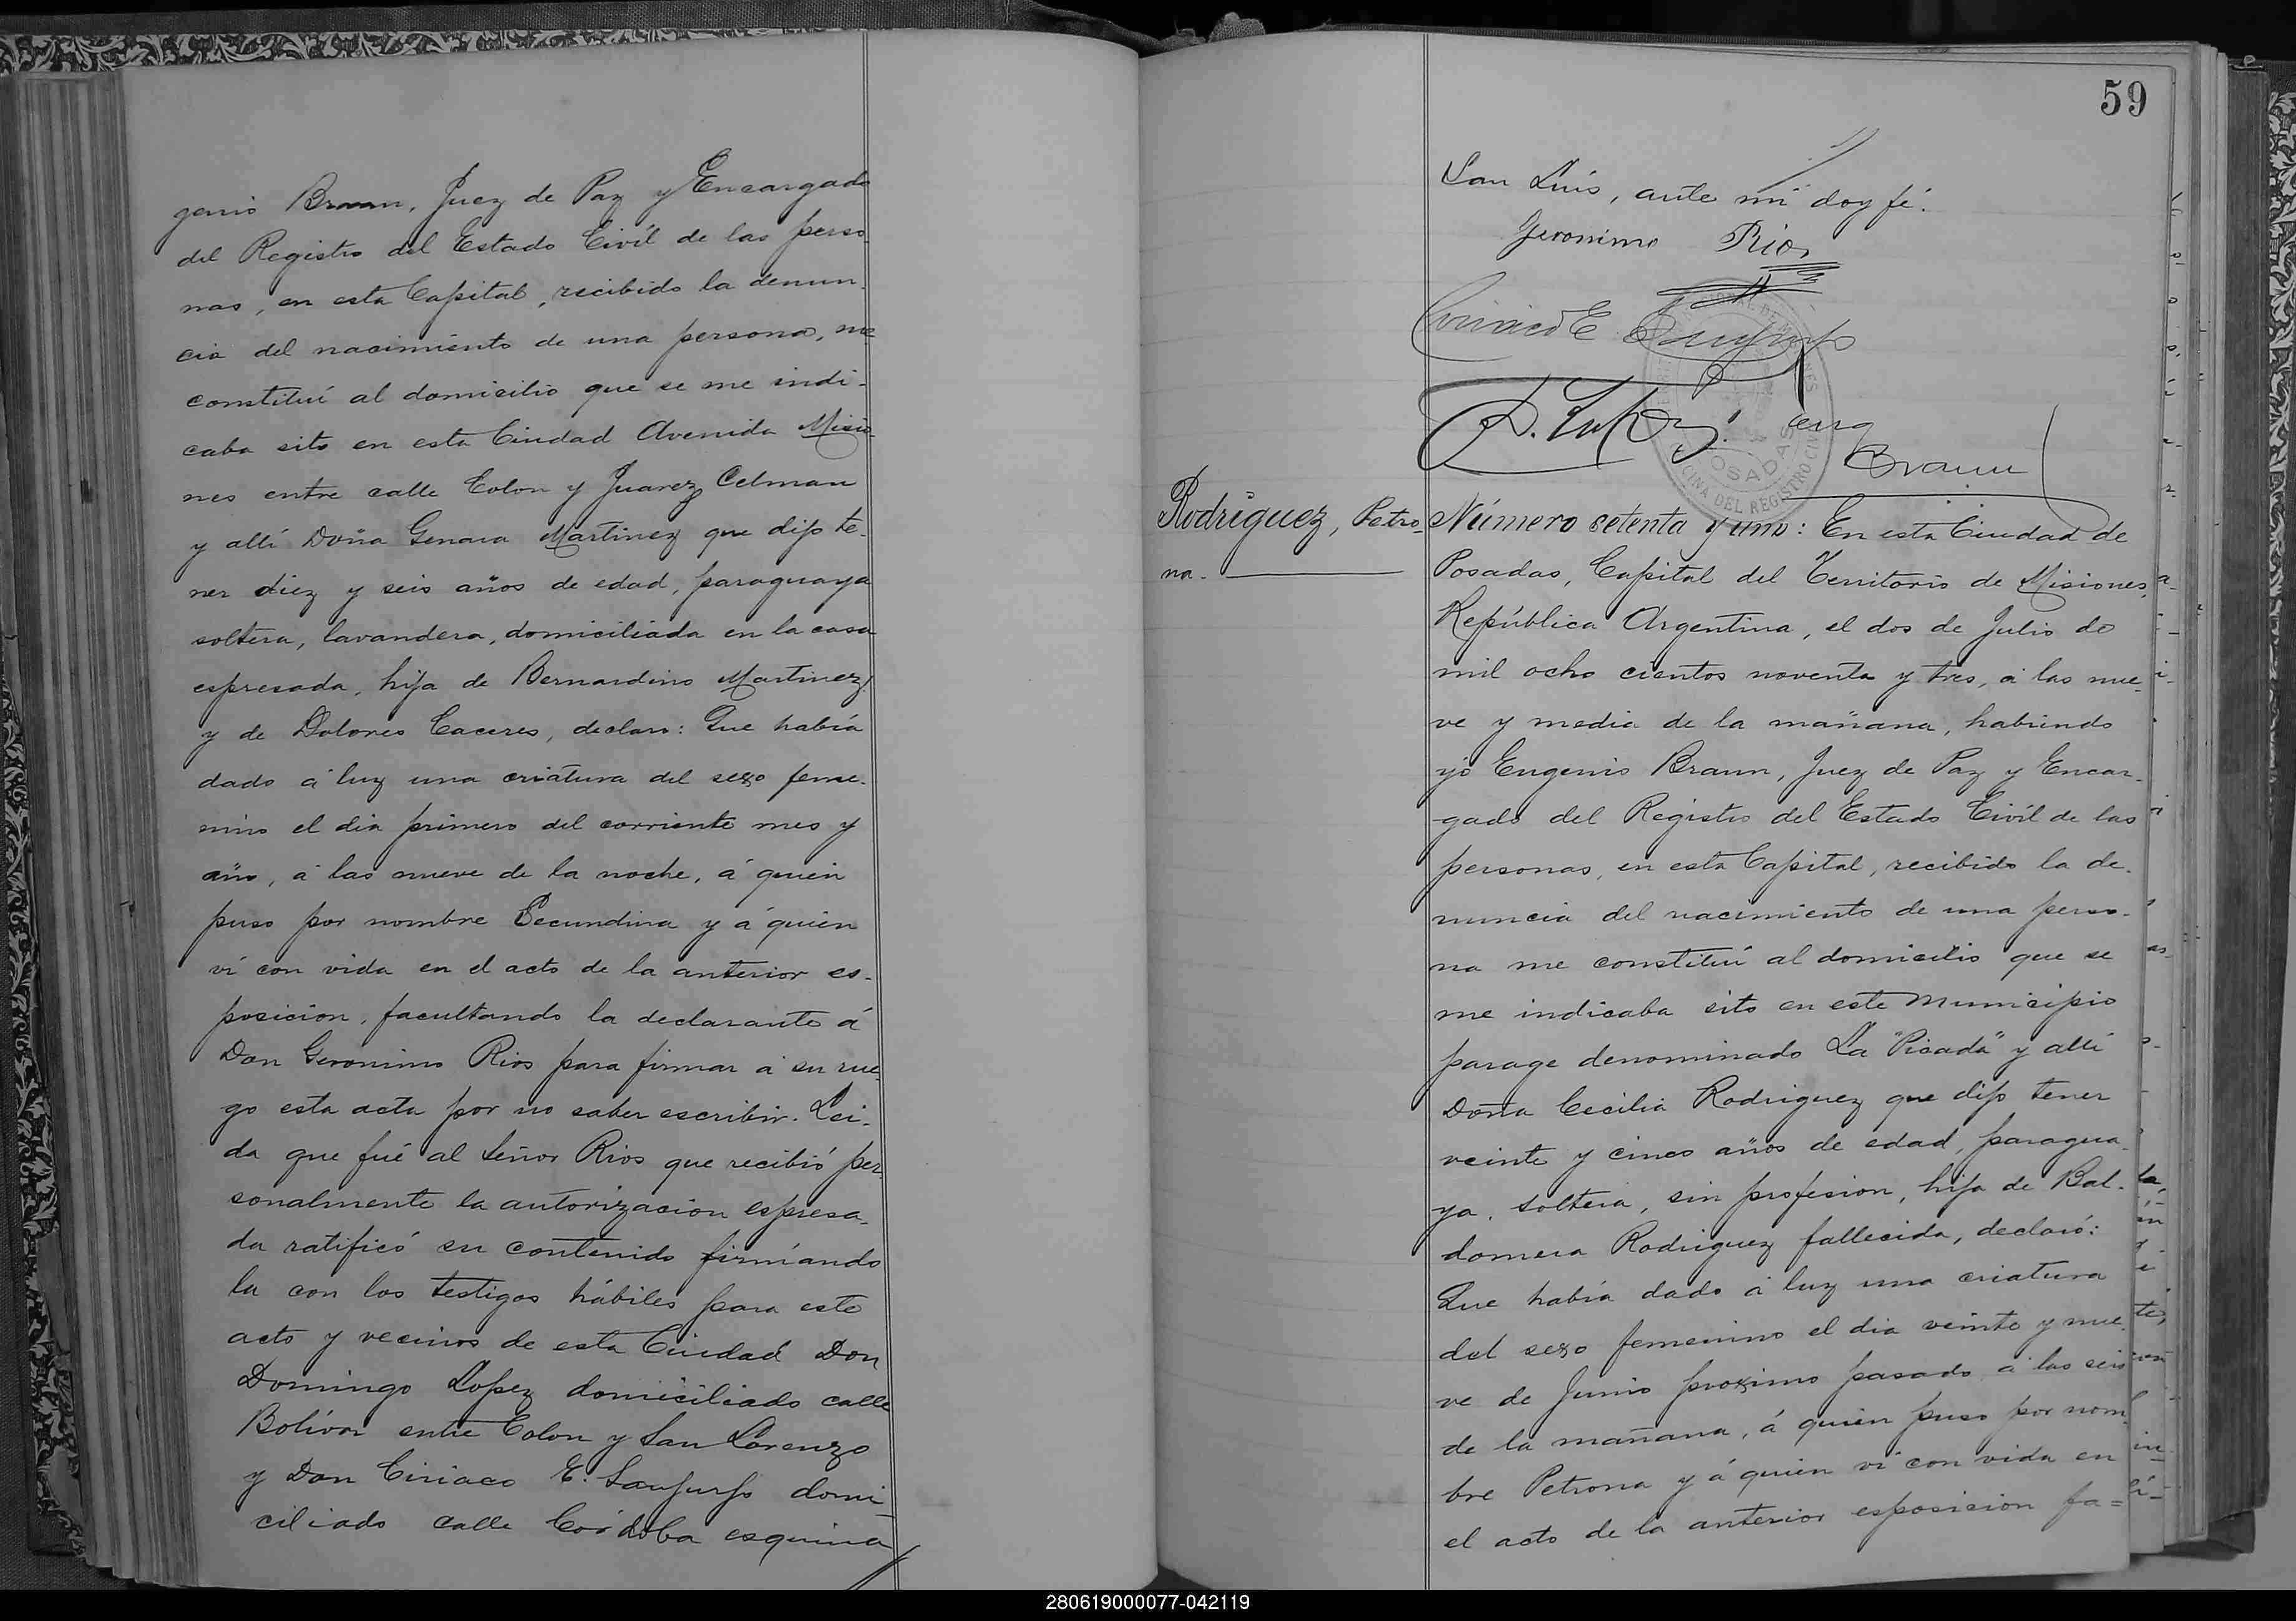 genio Braun, Juez de Paz y Encargado
del Registro del Estado Civíl de las perso
nas, en esta Capital, recibido la denun
cia del nacimiento de una persona, me
constituí al domicilio que se me indi-
caba sito en esta Ciudad Avenida Misio-
nes entre calle Colon y Juarez Celman
y allí Doña Genara Martinez que dijo te-
ner diez y seis años de edad, paraguaya
soltera, lavandera, domiciliada en la casa
espresada, hija de Bernardino Martinez
y de Dolores Caceres, declaro: Que había
dado á luz una criatura del sexo feme-
nino el dia primero del corriente mes y
año, á las nueve de la noche, á quien
puso por nombre Secundina y á quien
ví con vida en el acto de la anterior es-
posicion, facultando la declarante á
Don Geronimo Rios para firmar á su rue-
go esta acta por no saber escribir. Lei-
da que fué al Señor Rios que recibió per
sonalmente la autorizacion espresa-
da ratificó su contenido firmándo
la con los testigos hábiles para este
acto y vecinos de esta Ciudad Don
Domingo Lopez domiciliado calle
Bolívar entre Colon y San Lorenzo
y Don Ciriaco E. Sanjurjo domi-
ciliado calle Córdoba esquina
59
San Luis, ante mí doy fé.
Geronimo Rios
Ciriaco E Sanjurjo
Eug Braun
POSADAS
OFICINA DEL REGISTRO CIVIL
Rodriguez, Petro-
na.
Número setenta y uno: En esta Ciudad de
Posadas, Capital del Territorio de Misiones,
República Argentina, el dos de Julio de
mil ocho cientos noventa y tres, á las nue-
ve y media de la mañana, habiendo
yó Eugenio Braun, Juez de Paz y Encar-
gado del Registro del Estado Civíl de las
personas, en esta Capital, recibido la de-
nuncia del nacimiento de una perso-
na me constituí al domicilio que se
me indicaba sito en este Municipio
parage denominado La "Picada" y allí
Doña Cecilia Rodriguez que dijo tener
veinte y cinco años de edad, paragua-
ya, soltera, sin profesion, hija de Bal-
domera Rodriguez fallecida, declaró:
Que había dado á luz una criatura
del sexo femenino el dia veinte y nue-
ve de Junio proximo pasado á las seis
de la mañana, á quien puso por nom
bre Petrona y á quien ví con vida en
el acto de la anterior esposicion fa=
280619000077-042119